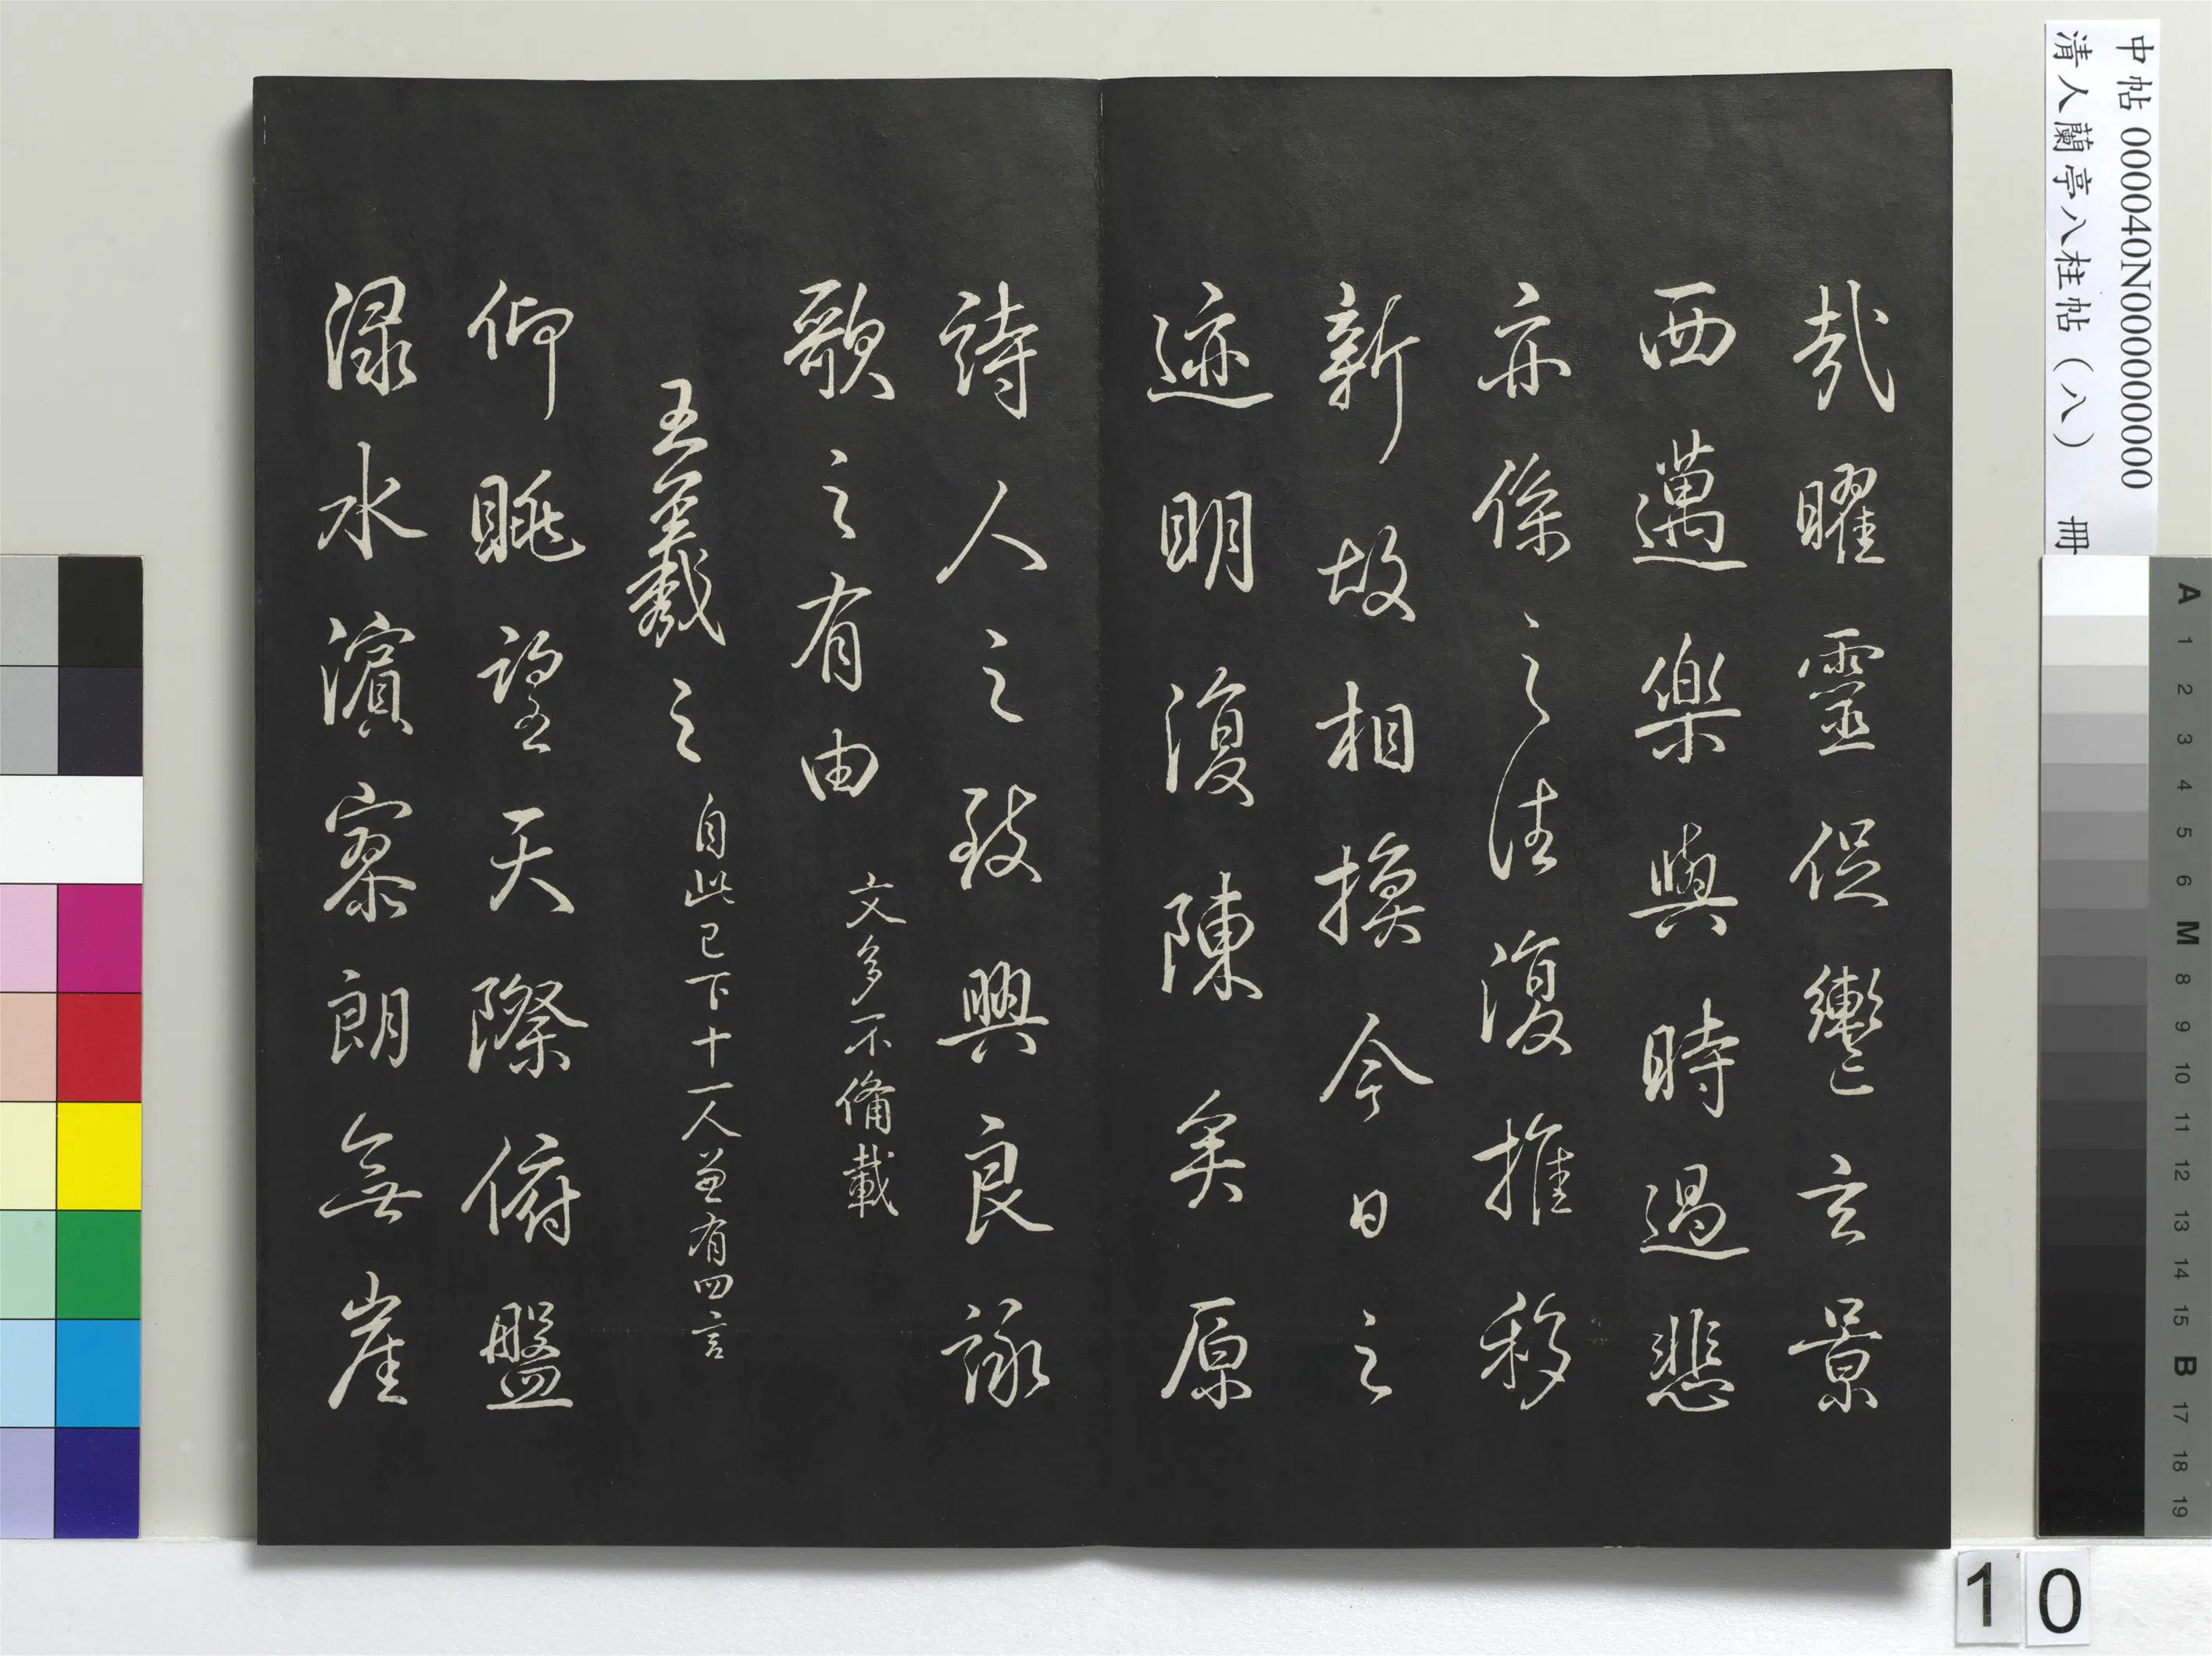 哉曜靈促轡玄景
西邁樂與時過悲
亦係之往復推移
新故相換今日之
迹明復陳矣原
詩人之致興良詠
歌之有由 文多不備載
王羲之 自此已下十一人並有四言
仰眺望天際俯盤
淥水濱寥朗無崖
中帖 000040N000000000
清人蘭亭八柱帖(八) 冊
A 1 2 3 4 5 6 M 8 9 10 11 12 13 14 15 B 17 18 19
10